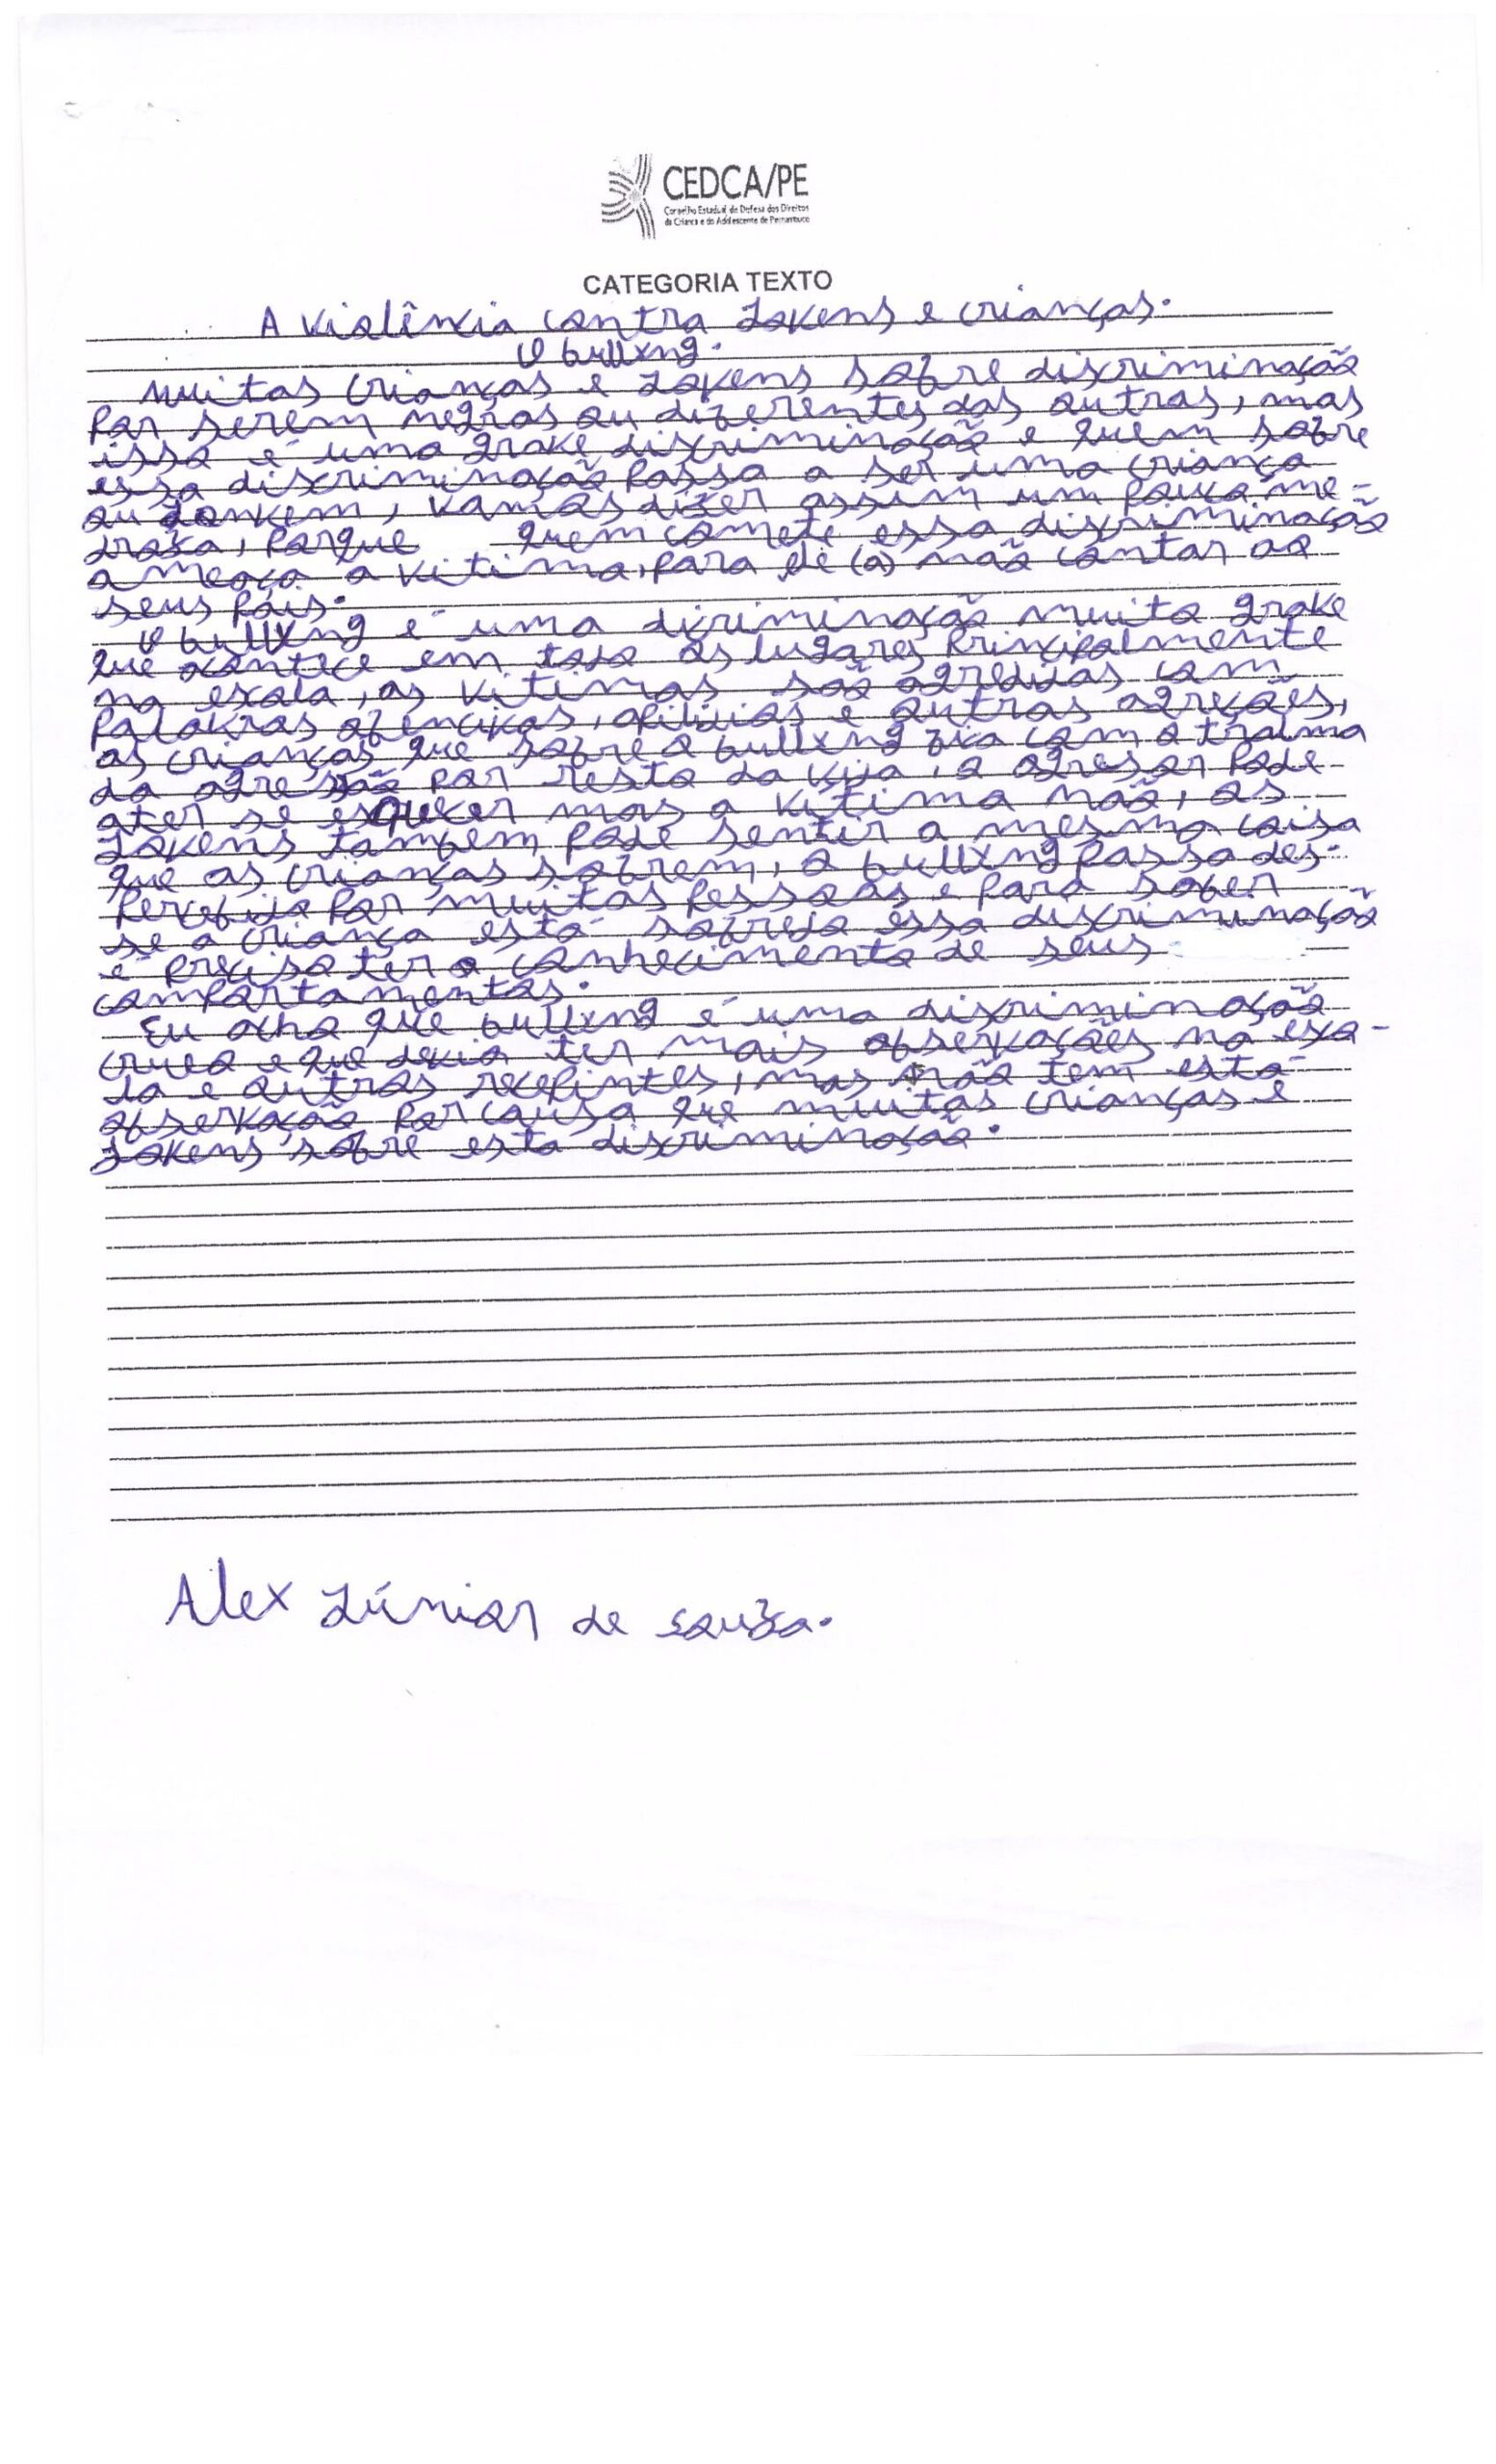 CEDCA/PE
Conselho Estadual de Defesa dos Direitos
da Criança e do Adolescente de Pernambuco
CATEGORIA TEXTO
A violência contra Jovens e crianças.
O bullyng.
Muitas crianças e Jovens sofre discriminação
por serem negros ou diferentes dos outros, mas
isso é uma grave discriminação e quem sofre
essa discriminação passa a ser uma criança
ou Jonvem, vamos dizer assim um pouco me-
drosa, porque quem comete essa discriminação
ameaça a vitima, para ele (a) não contar ao
seus pais.
O bullyng é uma diriminação muito grave
que acontece em todo os lugares principalmente
na escola, as vitimas são agredidas com
palavras ofencivas, apilidios e outras agreções,
as crianças que sofre o bullyng fica com o tralma
da agressão por resto da vida, o agresor pode
ater se esquecer mas a vitima não, os
Jovens tambem pode sentir a mesma coisa
que as crianças sofrem, o bullyng passa des-
percebido por muitas pessoas e para saber
se a criança está sofredo essa discriminação
é preciso ter o conhecimento de seus
comportamentos.
Eu acho que bullyng é uma discriminação
cruel e que devia ter mais observações na esco-
la e outros recepintes, mas não tem esta
observação por causa que muitas crianças e
Jovens sofre esta discriminação.
Alex Júnior de Souza.